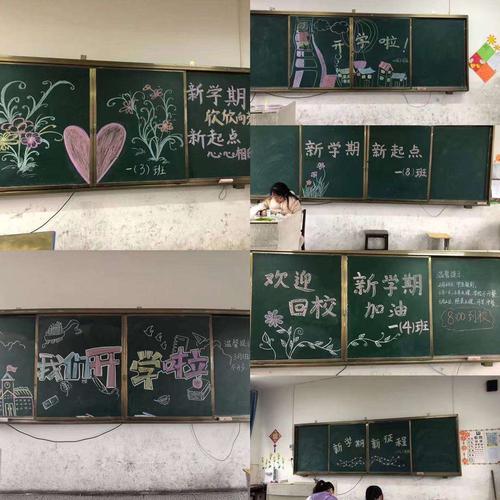 新学期
欣欣向
新起点
心心相
一(3)班
开学啦！
新学期 新起点
一(8)班
欢迎
回校
新学期
加油
一(4)班
温馨提示
8:00到校
我们开学啦
温馨提
新学期 新征程